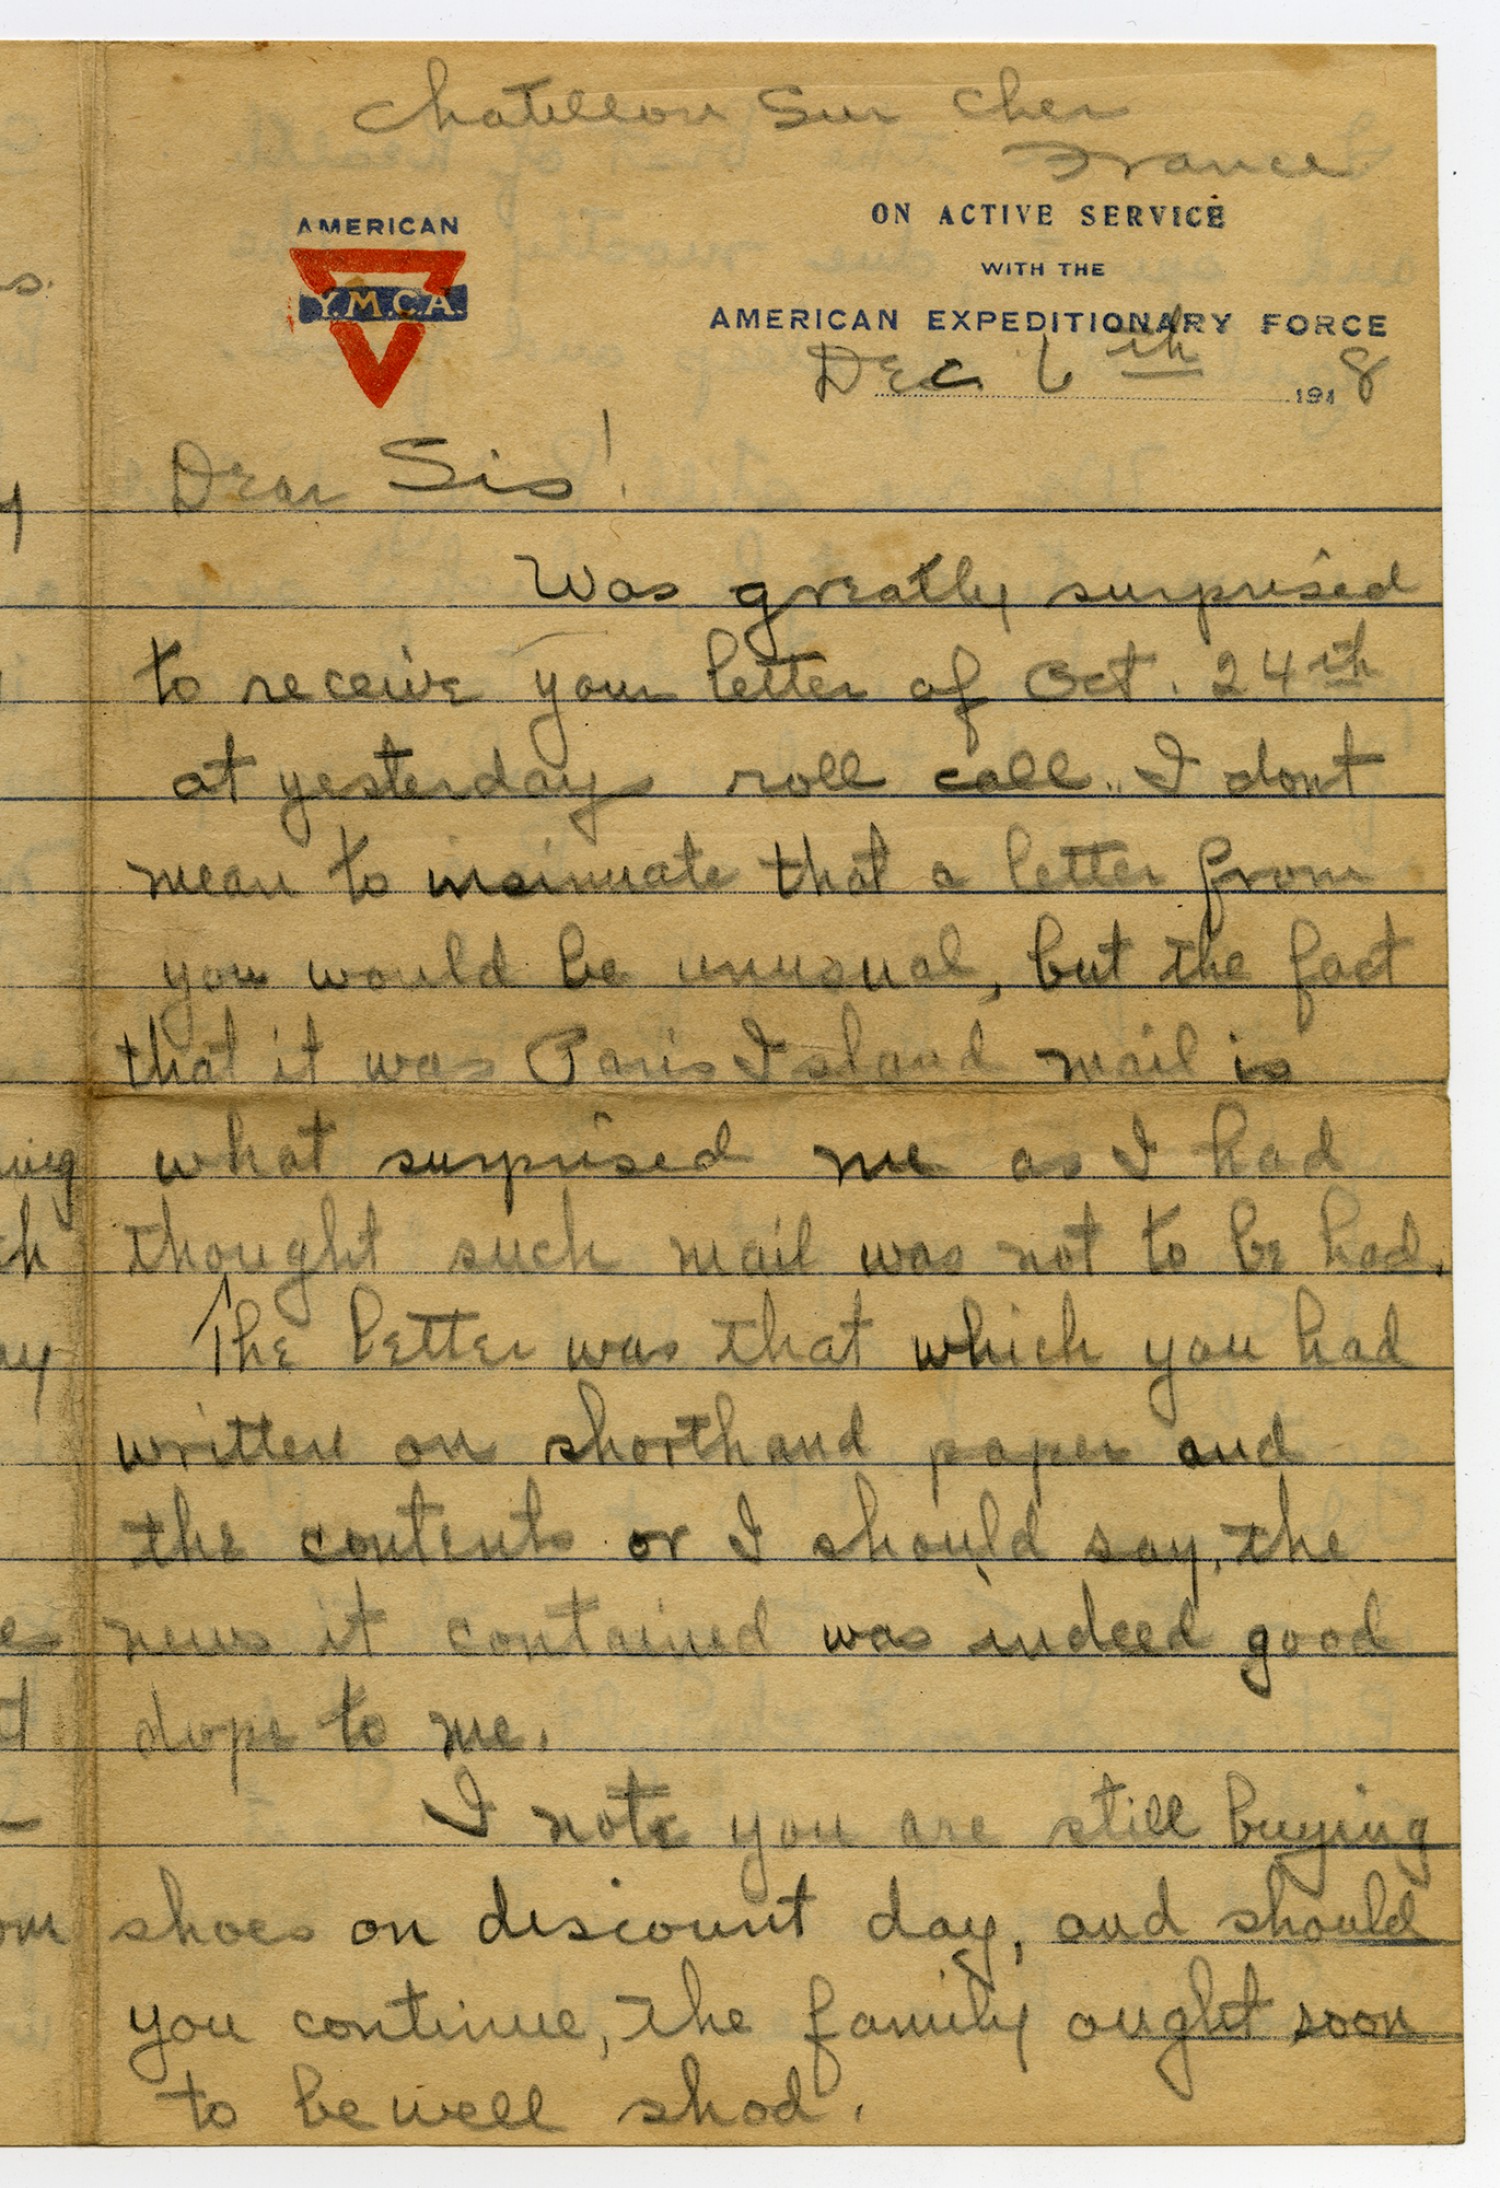 Chatillon Sur Cher
France
AMERICAN
Y.M.C.A.
ON ACTIVE SERVICE
WITH THE
AMERICAN EXPEDITIONARY FORCE
Dec 6th 1918
Dear Sis!
Was greatly surprised
to receive your letter of Oct. 24th
at yesterdays roll call. I dont
mean to insinuate that a letter from
you would be unusual, but the fact
that it was Paris Island mail is
what surprised me as I had
thought such mail was not to be had.
The letter was that which you had
written on shorthand paper and
the contents or I should say, the
news it contained was indeed good
dope to me.
I note you are still buying
shoes on discount day, and should
you continue, the family ought soon
to be well shod.